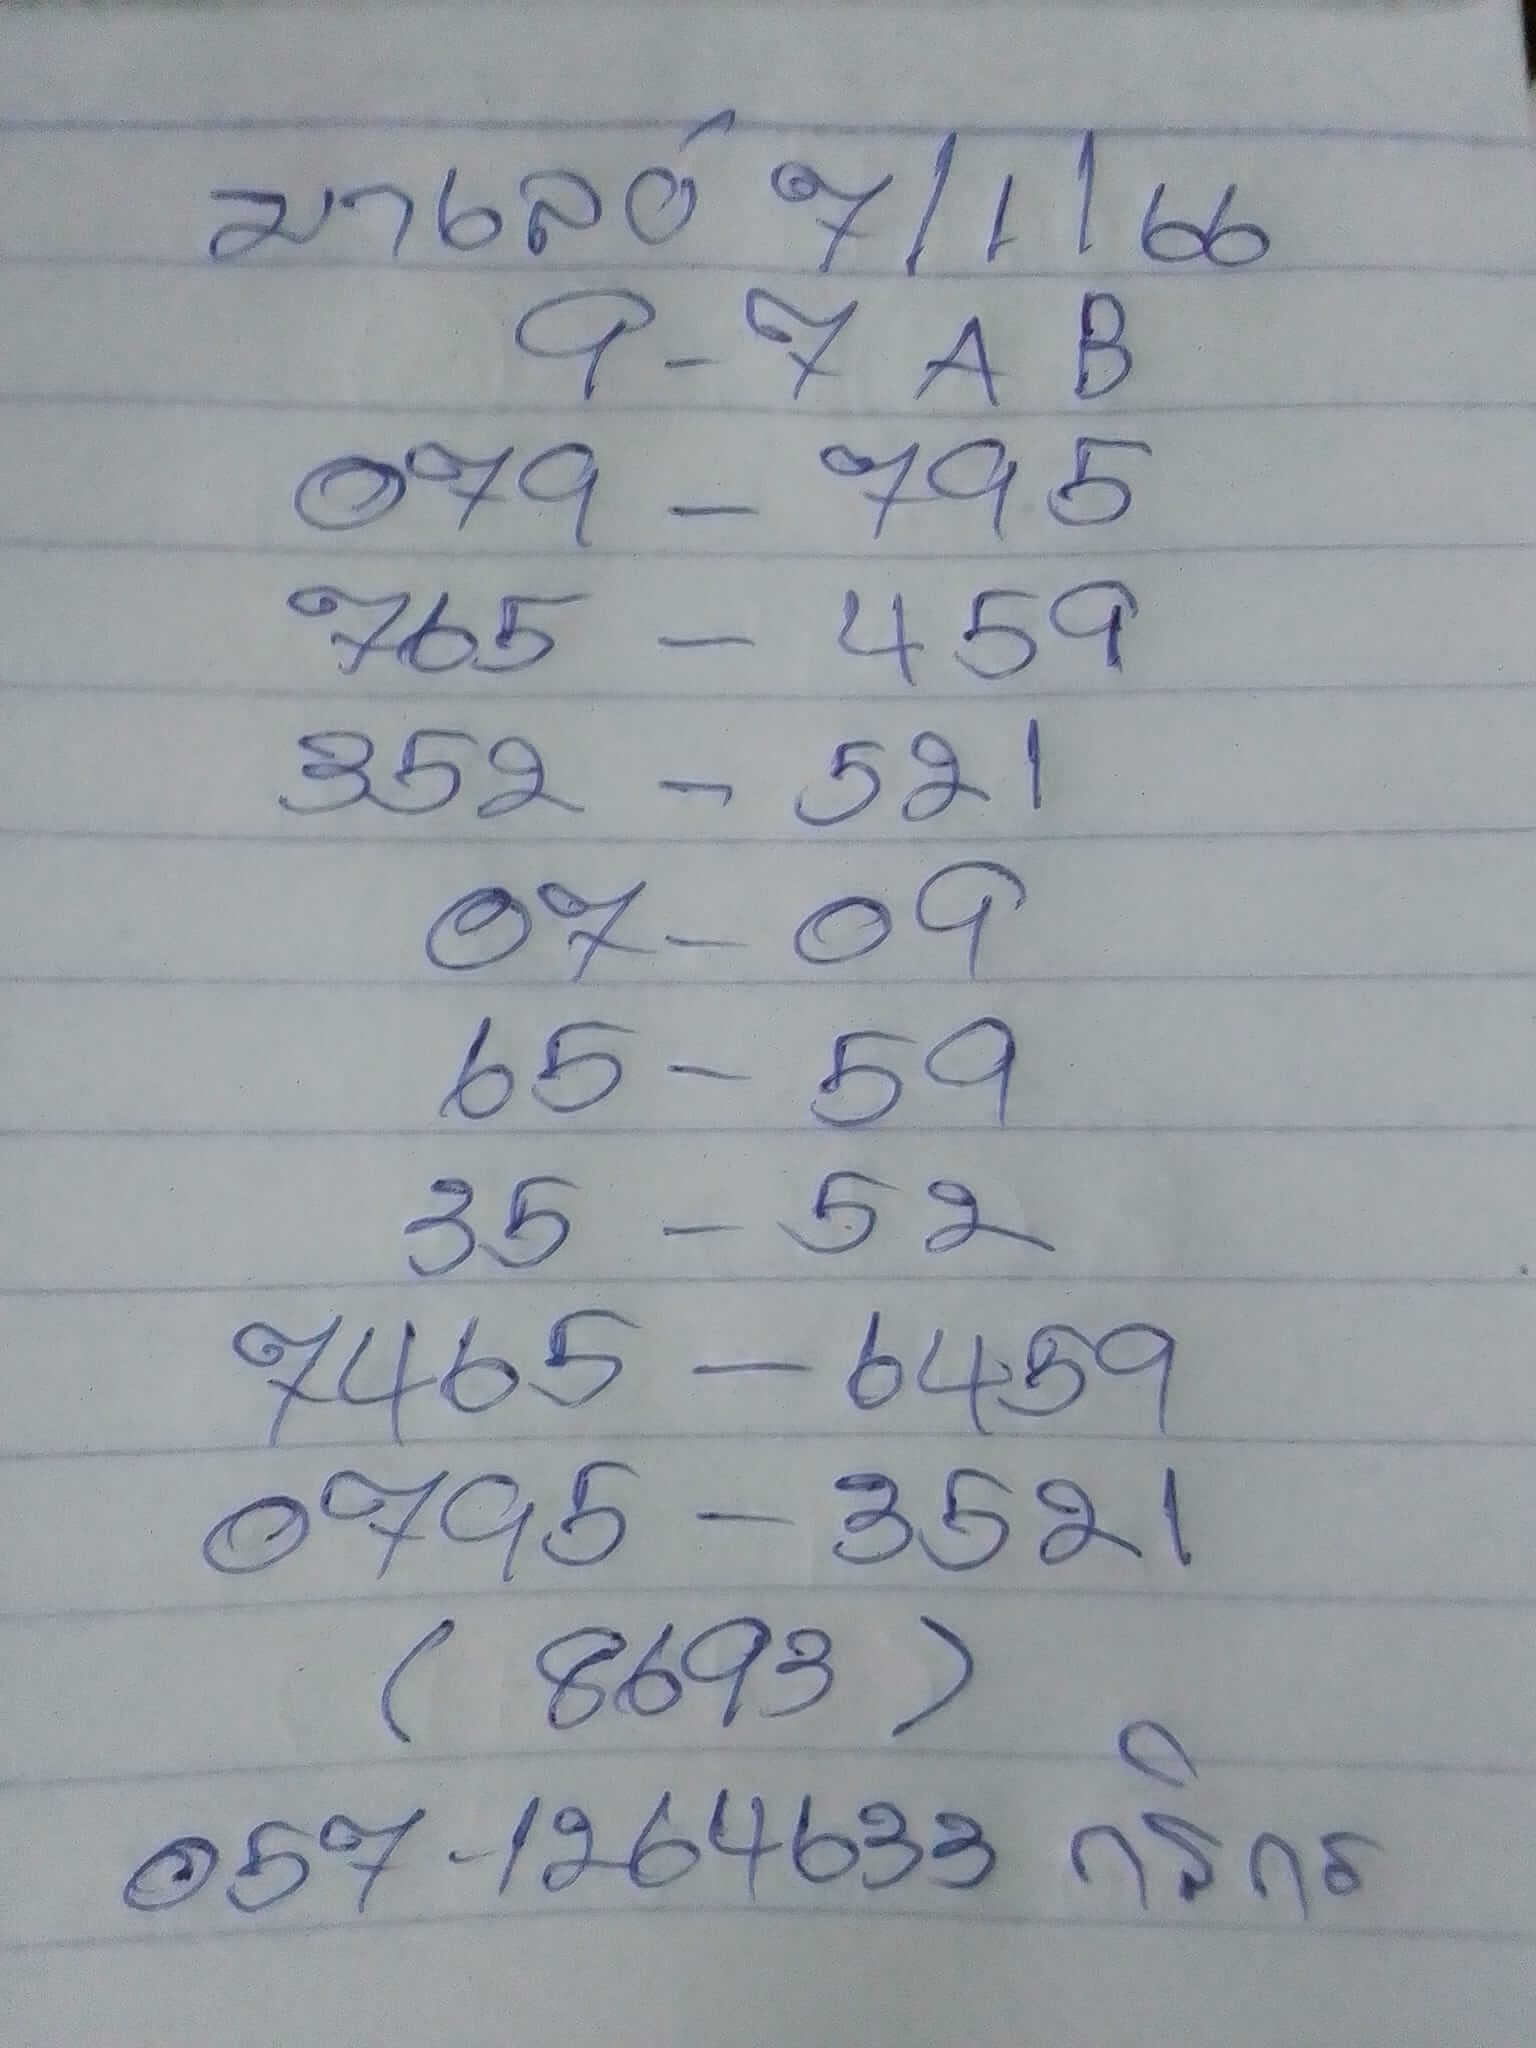 มาเลย์ 7/1/66
9-7 A B
079 - 795
765 - 459
352 - 521
07 - 09
65 - 59
35 - 52
7465 - 6459
0795 - 3521
(8693)
057-1264633